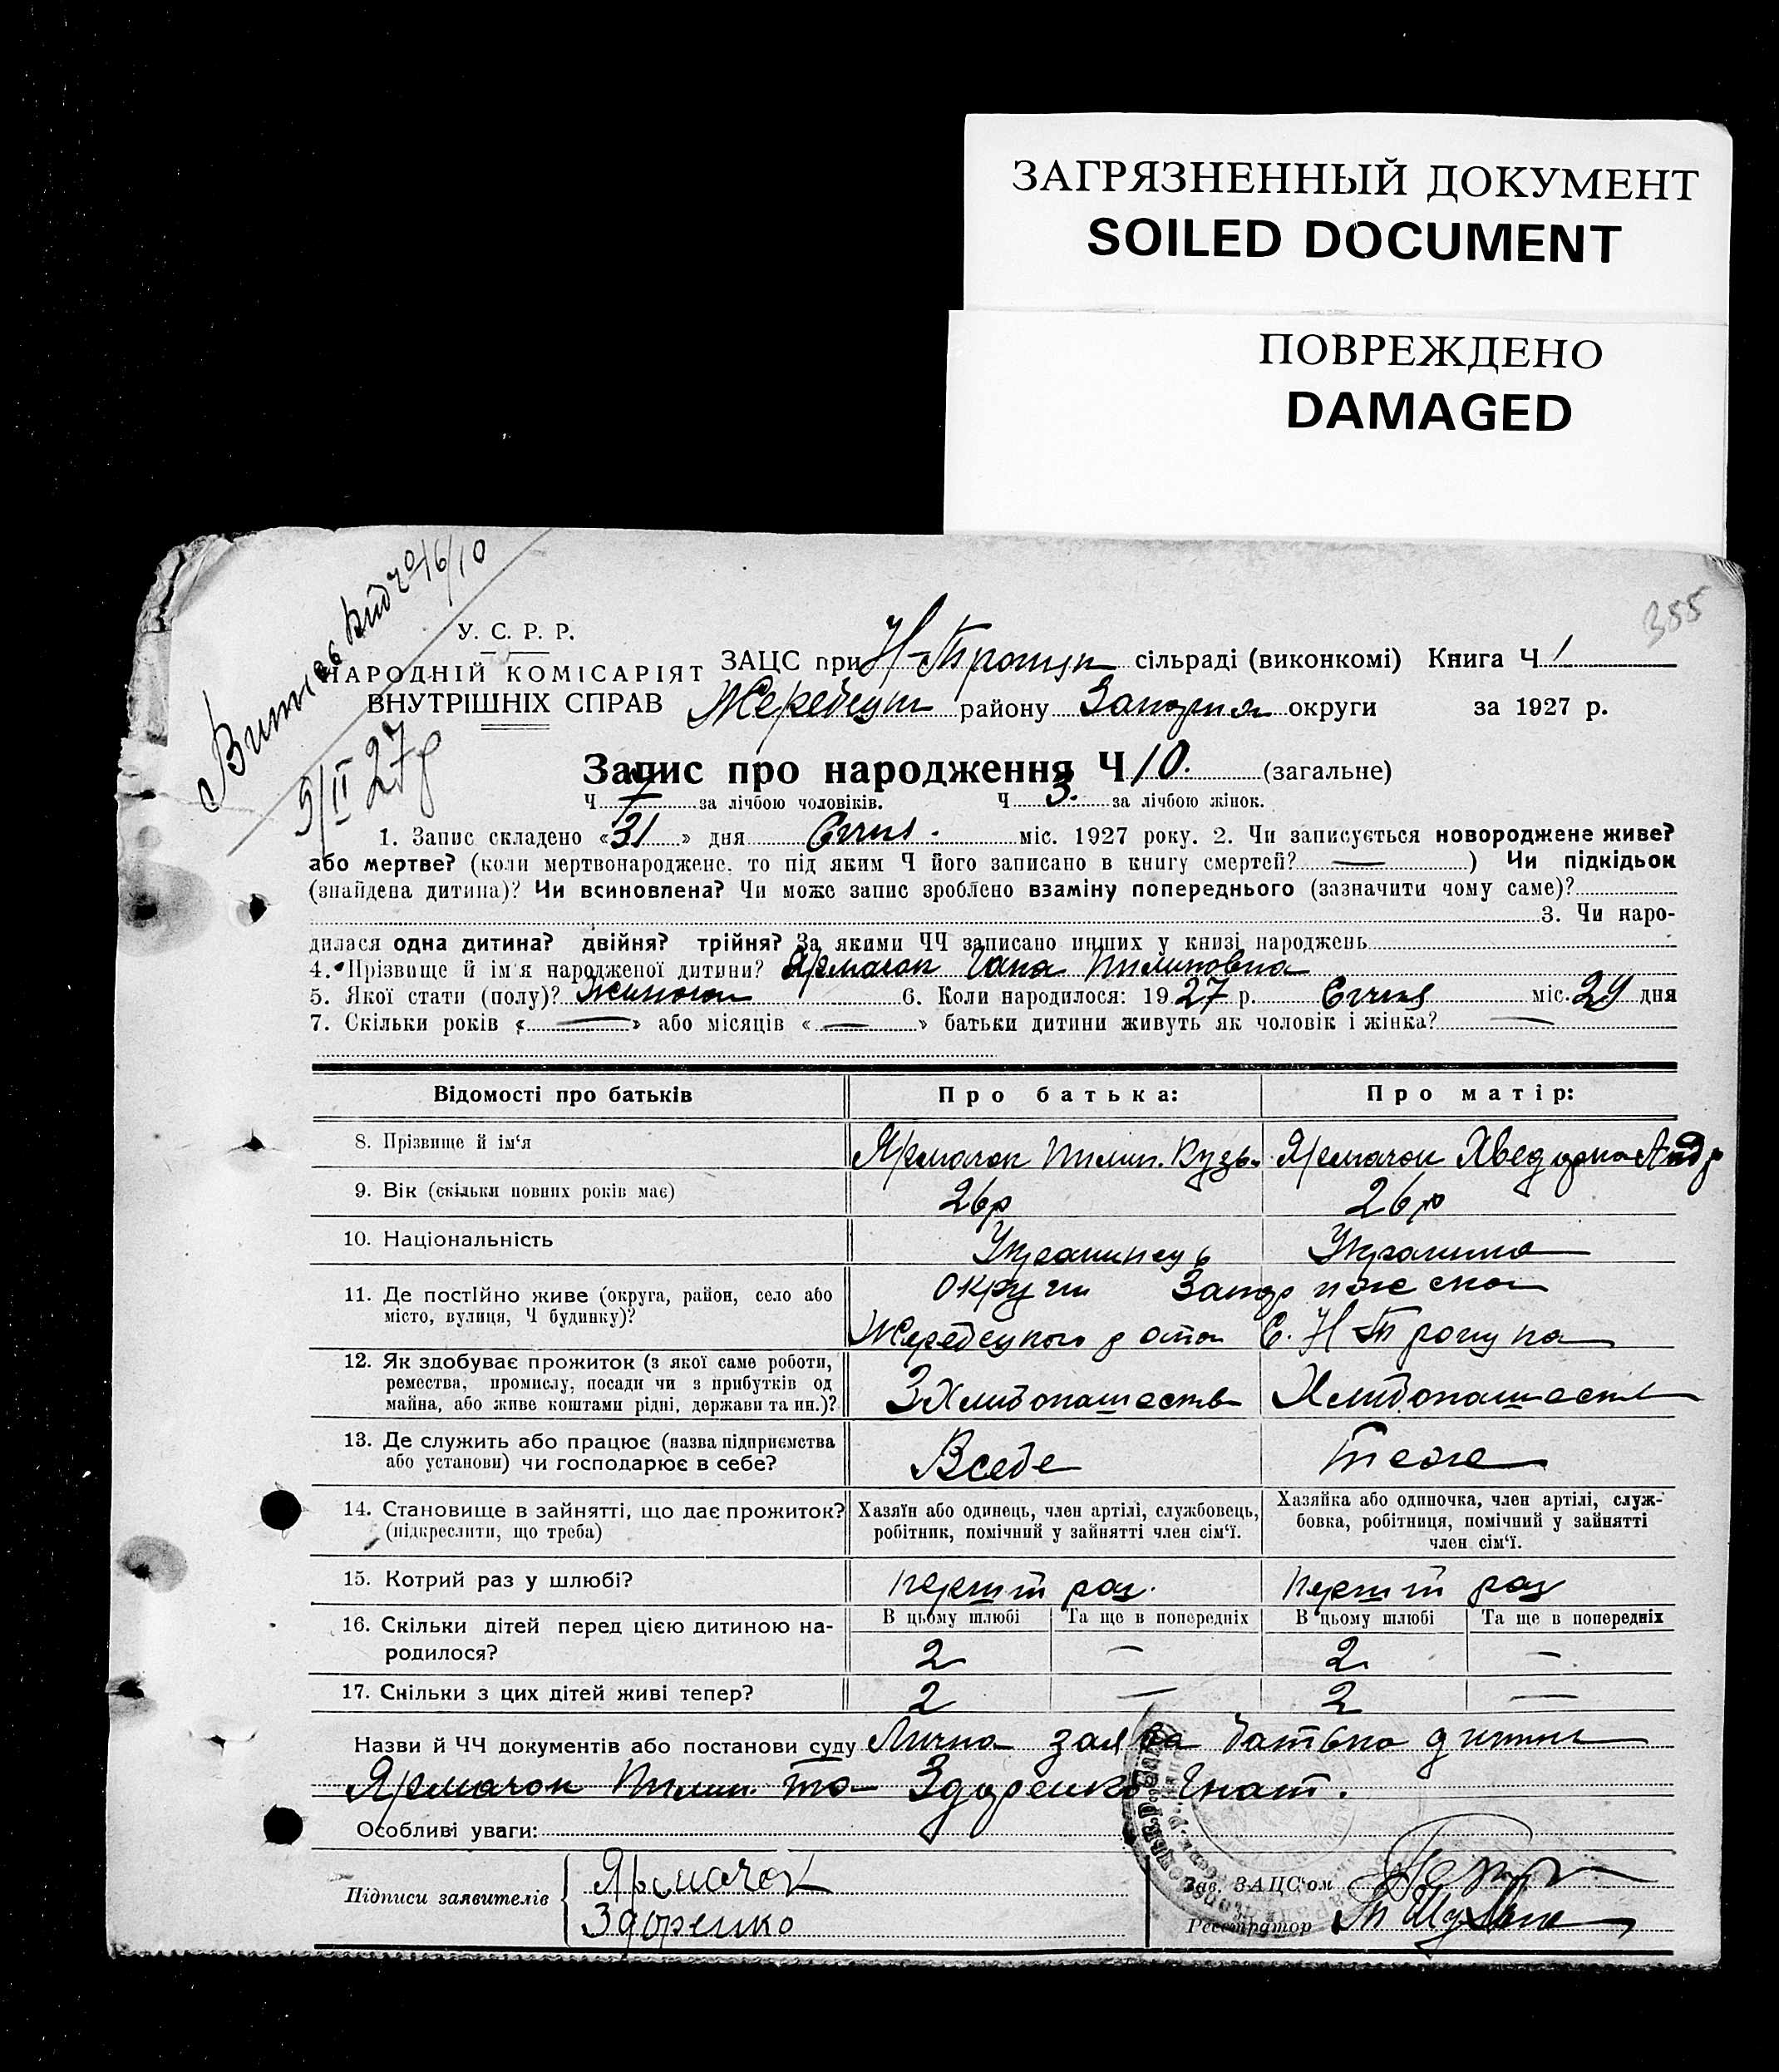 ЗАГРЯЗНЕННЫЙ ДОКУМЕНТ
SOILED DOCUMENT
ПОВРЕЖДЕНО
DAMAGED
355
9/II 27р
У. С. Р. Р.
НАРОДНІЙ КОМІСАРІЯТ
ВНУТРІШНІХ СПРАВ
ЗАЦС при Н-Троицк сільраді (виконкомі) Книга Ч 1
Жеребецк району округи за 1927 р.
Запис про народження Ч 10. (загальне)
Ч 7 за лічбою чоловіків. Ч 3. за лічбою жінок.
1. Запис складено «31» дня міс. 1927 року. 2. Чи записується новороджене живе?
або мертве? (коли мертвонароджене, то під яким Ч його записано в книгу смертей? — ) Чи підкідьок
(знайдена дитина)? Чи всиновлена? Чи може запис зроблено взаміну попереднього (зазначити чому саме)?
3. Чи наро-
дилася одна дитина? двійня? трійня? За якими ЧЧ записано инших у книзі народжень
4. Прізвище й ім'я народженої дитини? Ярмачок Гана Пилиповна
5. Якої стати (полу)? 6. Коли народилося: 1927 р. міс. 29 дня
7. Скільки років «—» або місяців «—» батьки дитини живуть як чоловік і жінка? —
Відомості про батьків
Про батька:
Про матір:
8. Прізвище й ім'я
Ярмачок Пилип. Кузь.
Ярмачок Хведорна Андр
9. Вік (скільки повних років має)
26р
26р
10. Національність
Украинець
Украинка
11. Де постійно живе (округа, район, село або
місто, вулиця, Ч будинку)?
округи
С. Н Троицка
12. Як здобуває прожиток (з якої саме роботи,
ремества, промислу, посади чи з прибутків од
майна, або живе коштами рідні, держави та ин.)?
З Хлибопашества
Хлибопашеств
13. Де служить або працює (назва підприємства
або установи) чи господарює в себе?
Всебе
теже
14. Становище в зайнятті, що дає прожиток?
(підкреслити, що треба)
Хазяїн або одинець, член артілі, службовець,
робітник, помічний у зайнятті член сім'ї.
Хазяйка або одиночка, член артілі, служ-
бовка, робітниця, помічний у зайнятті
член сім'ї.
15. Котрий раз у шлюбі?
перший раз.
перший раз
16. Скільки дітей перед цією дитиною на-
родилося?
В цьому шлюбі
Та ще в попередніх
В цьому шлюбі
Та ще в попередніх
2
—
2
—
17. Скільки з цих дітей живі тепер?
2
—
2
—
Назви й ЧЧ документів або постанови суду Лична заява батька дитини
Ярмачок Пилип. та Здоренко Гнат.
Особливі уваги:
Підписи заявителів
Ярмачок
Здоренко
Зав. ЗАЦС'ом
Реєстратор